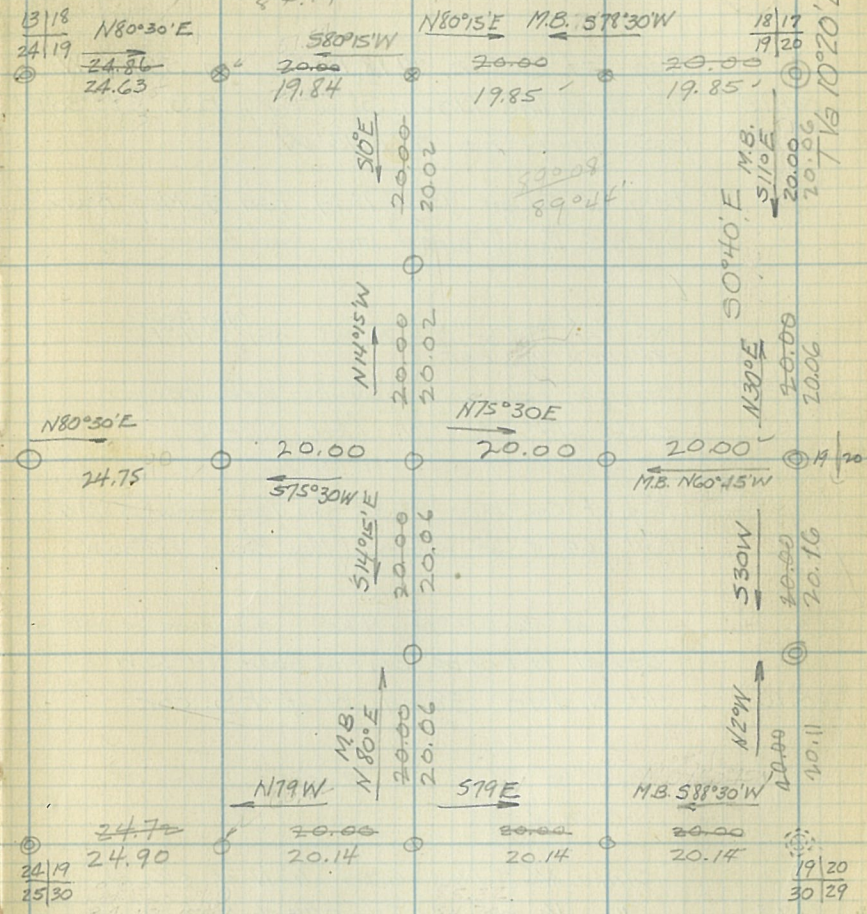 13|18
24|19
N80°30'E
S80°15'W
N80°15'E
M.B. S78°30'W
18|17
19|20
24.86
24.63
20.00
19.84
20.00
19.85
20.00
19.85
S10°E
20.00
20.02
M.B.
S11°E
20.00
20.06
S0°40'E
N14°15'W
20.00
20.02
N30°E
20.00
20.06
N80°30'E
24.75
20.00
S75°30W
N75°30E
20.00
20.00
M.B. N60°45'W
19|20
S14°15'E
20.00
20.06
S30W
20.00
20.16
M.B.
N80°E
20.00
20.06
N2°W
20.00
20.11
N79W
S79E
M.B. S88°30'W
24.72
24.90
20.00
20.14
20.00
20.14
20.00
20.14
24|19
25|30
19|20
30|29